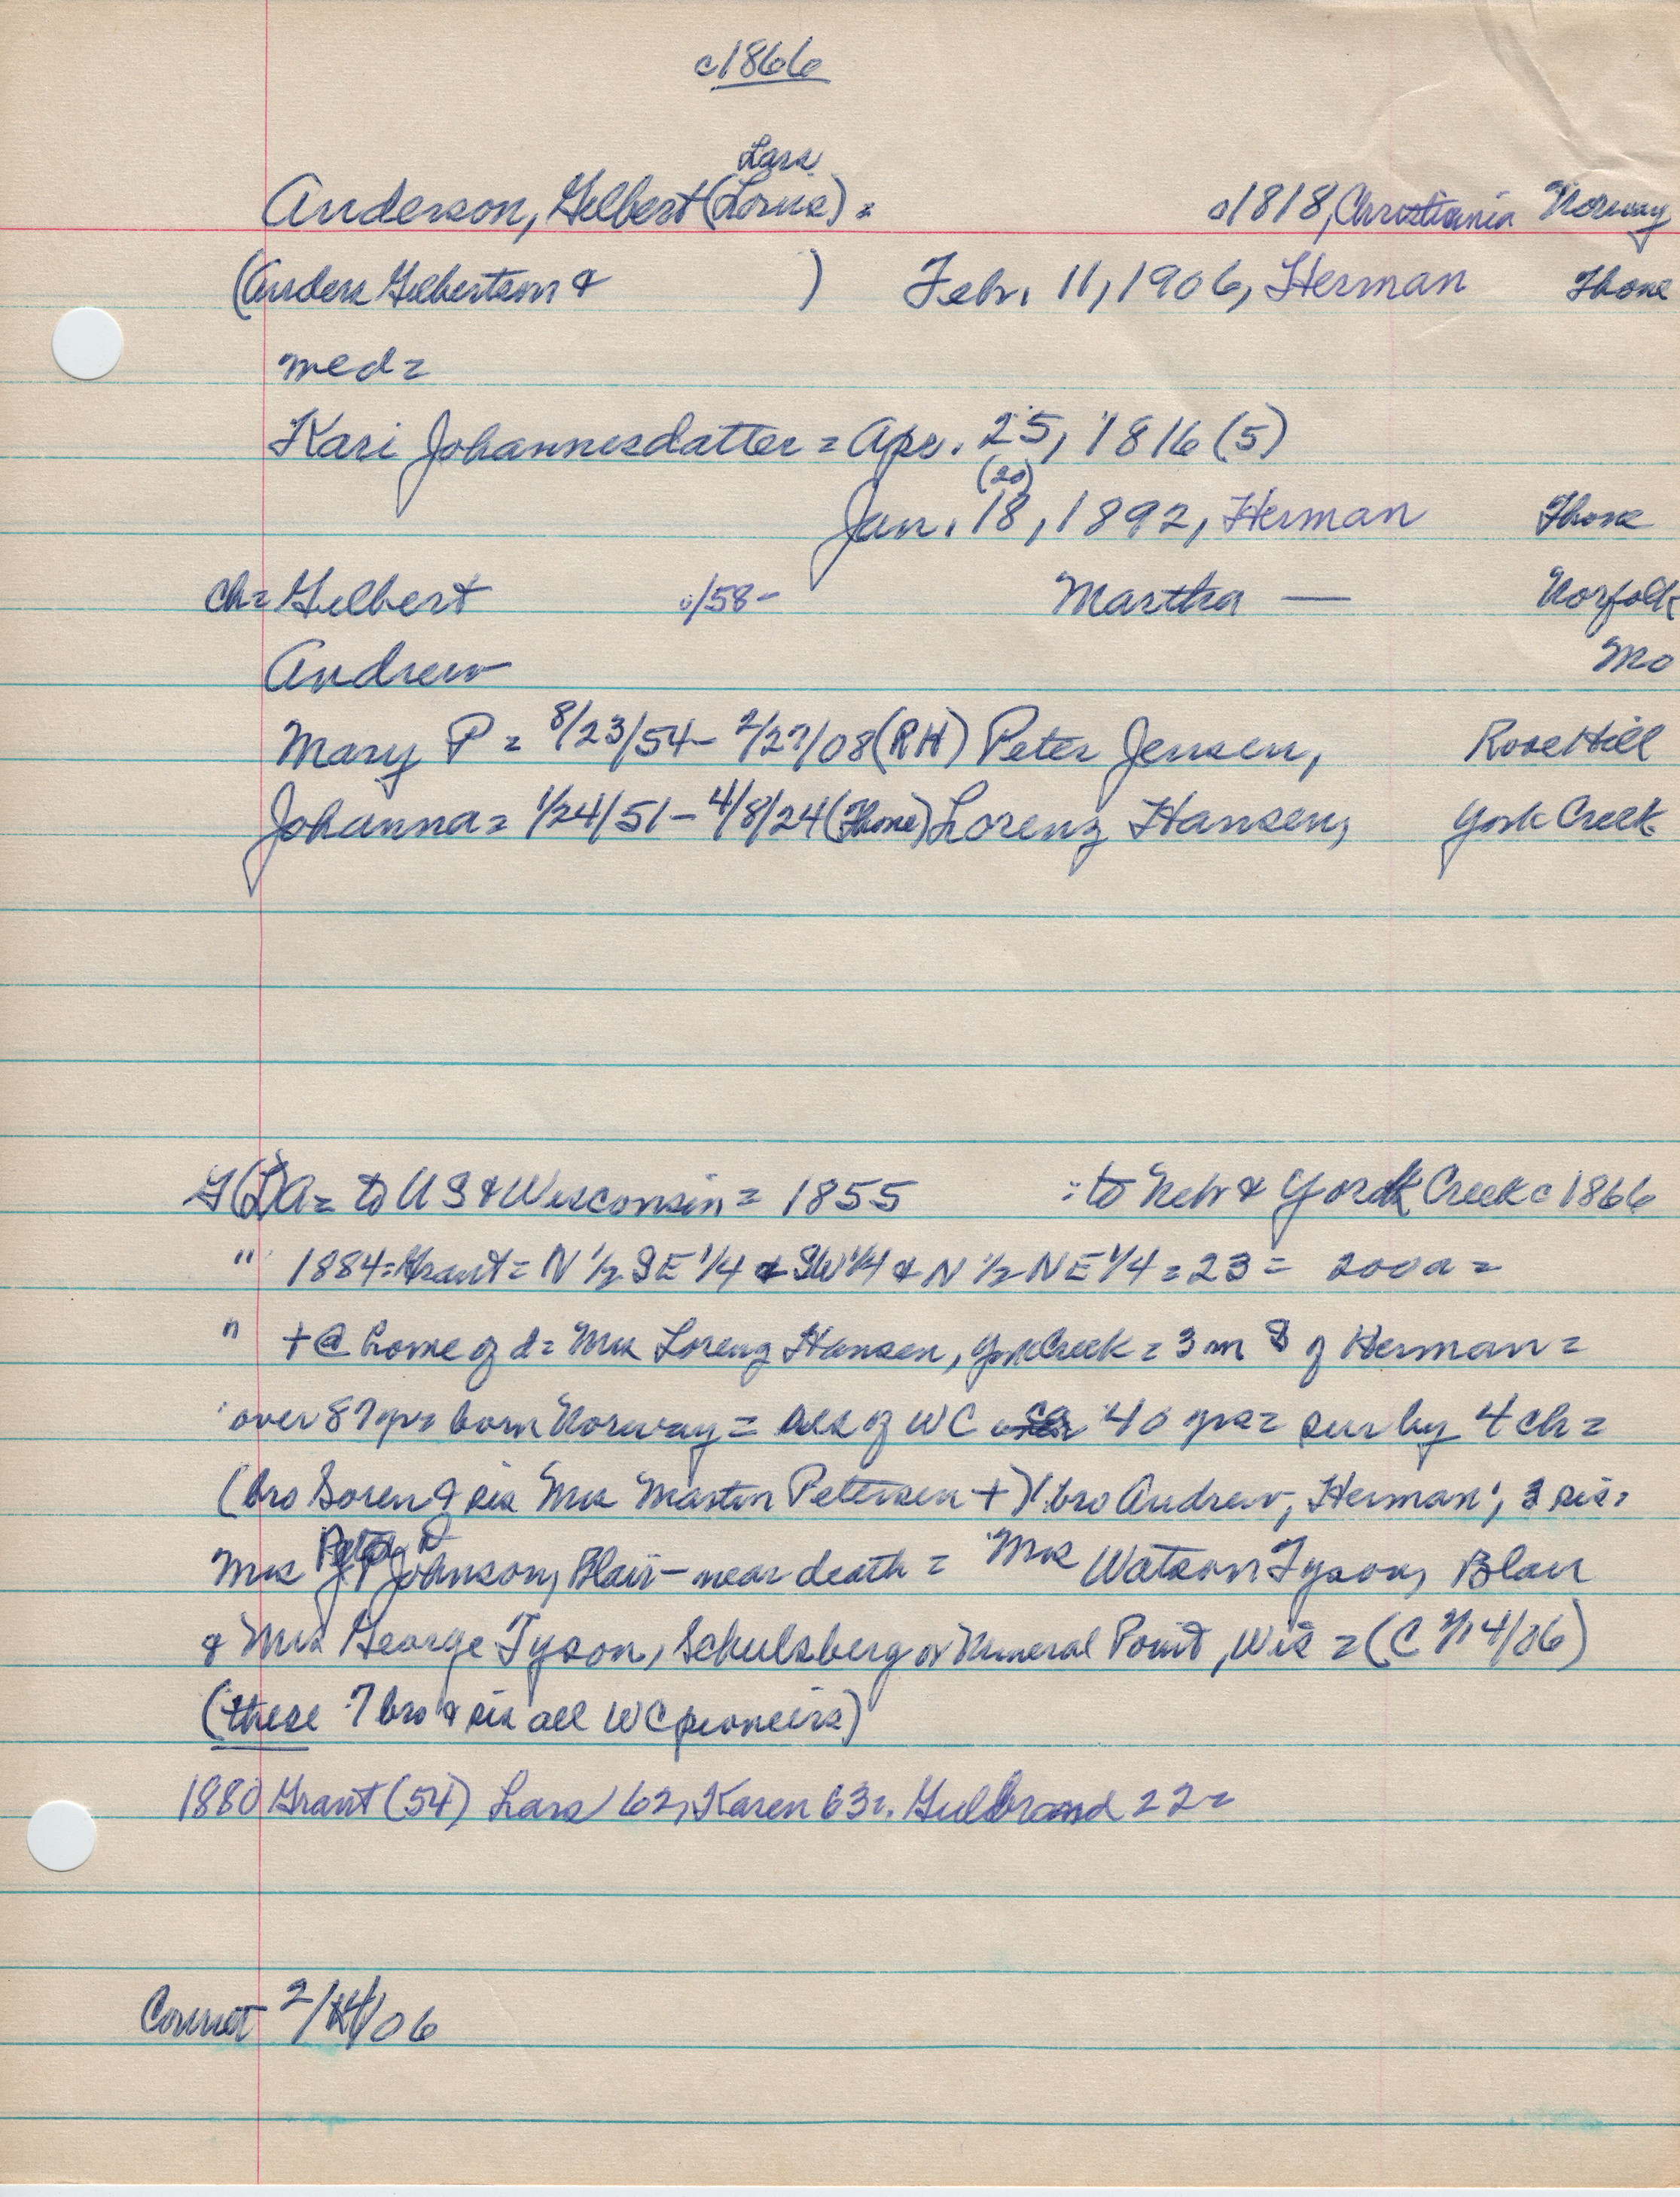 c1866
Lars
Anderson, Gilbert (Lorus) = c1818, Christiania Norway
(Anders Gilbertson & ) Febr. 11, 1906, Herman Thone
med =
Kari Johannesdatter = Apr. 25, 1816 (5)
(20)
Jan. 18, 1892, Herman Thone
ch = Gilbert c/58- Martha — Norfolk
Andrew Mo
Mary P = 8/23/54 - 2/27/08 (RH) Peter Jensen, Rose Hill
Johanna = 1/24/51 - 4/8/24 (Thone) Lorenz Hansen, York Creek
G(L)A = to US & Wisconsin = 1855 : to Nebr & York Creek c 1866
" 1884 = Grant = N 1/2 SE 1/4 & SW 1/4 & N 1/2 NE 1/4 = 23 = 200a =
" + @ home of d = Mrs Lorenz Hansen, York Creek = 3 m S of Herman =
over 87 yrs born Norway = res of WC ca 40 yrs = sur by 4 ch =
(bro Soren & sis Mrs Martin Petersen +) bro Andrew, Herman; 3 sis =
Mrs Johnson, Blair - near death = Mrs Watson Tyson, Blair
& Mrs George Tyson, Schulsberg or Mineral Point, Wis = (C 2/14/06)
(these 7 bro & sis all WC pioneers)
1880 Grant (54) Lars 62, Karen 63 =. Gulbrand 22 =
Courier 2/14/06